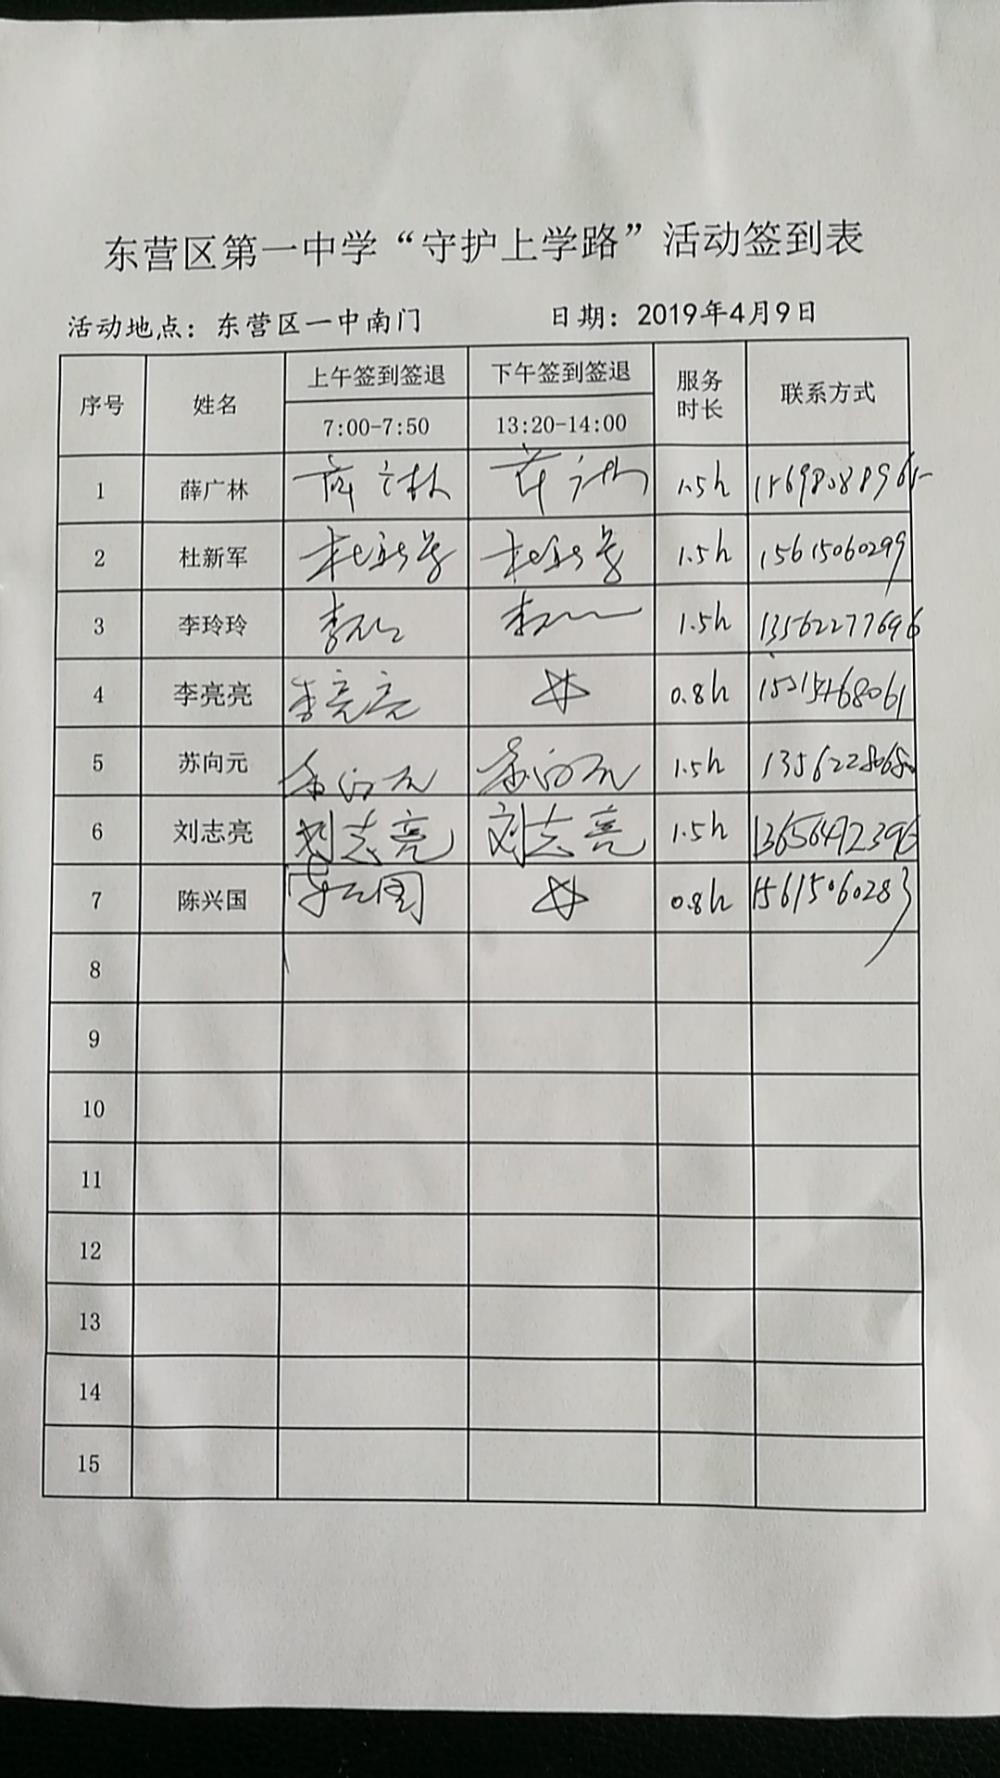 东营区第一中学“守护上学路”活动签到表
活动地点：东营区一中南门 日期：2019年4月9日
序号 姓名 上午签到签退 下午签到签退 服务时长 联系方式
7:00-7:50 13:20-14:00
1 薛广林 薛广林 薛广林 1.5h
2 杜新军 杜新军 杜新军 1.5h 15615060299
3 李玲玲 1.5h 13562277696
4 李亮亮 李亮亮 0.8h 15215468061
5 苏向元 苏向元 苏向元 1.5h
6 刘志亮 刘志亮 刘志亮 1.5h 13656492396
7 陈兴国 0.8h 15615060283
8
9
10
11
12
13
14
15